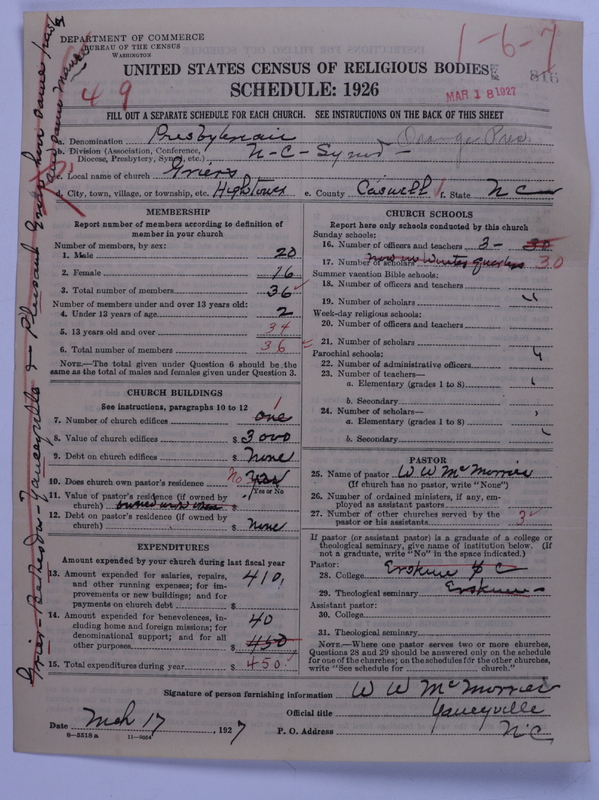 DEPARTMENT OF COMMERCE
BUREAU OF THE CENSUS
WASHINGTON
1-6-7
49
816
MAR 18 1927
UNITED STATES CENSUS OF RELIGIOUS BODIES
SCHEDULE: 1926
FILL OUT A SEPARATE SCHEDULE FOR EACH CHURCH. SEE INSTRUCTIONS ON THE BACK OF THIS SHEET
a. Denomination Presbyterian
b. Division (Association, Conference, Diocese, Presbytery, Synod, etc.) N-C-Synod-
Orange Pres
c. Local name of church Griers
d. City, town, village, or township, etc. Hightower e. County Caswell f. State N C
MEMBERSHIP
Report number of members according to definition of
member in your church
Number of members, by sex:
1. Male 20
2. Female 16
3. Total number of members 36
Number of members under and over 13 years old:
4. Under 13 years of age 2
5. 13 years old and over 34
6. Total number of members 36
NOTE.—The total given under Question 6 should be the
same as the total of males and females given under Question 3.
CHURCH BUILDINGS
See instructions, paragraphs 10 to 12
7. Number of church edifices one 1
8. Value of church edifices $ 3000
9. Debt on church edifices $ None
10. Does church own pastor's residence No
Yes or No
11. Value of pastor's residence (if owned by
church) $
12. Debt on pastor's residence (if owned by
church) $ None
EXPENDITURES
Amount expended by your church during last fiscal year
13. Amount expended for salaries, repairs,
and other running expenses; for im-
provements or new buildings; and for
payments on church debt $ 410.
14. Amount expended for benevolences, in-
cluding home and foreign missions; for
denominational support; and for all
other purposes $ 40
450
15. Total expenditures during year $ 450
CHURCH SCHOOLS
Report here only schools conducted by this church
Sunday schools:
16. Number of officers and teachers 3- 30
17. Number of scholars now no Winter quarters 30
Summer vacation Bible schools:
18. Number of officers and teachers
19. Number of scholars "
Week-day religious schools:
20. Number of officers and teachers
21. Number of scholars
Parochial schools:
22. Number of administrative officers
23. Number of teachers—
a. Elementary (grades 1 to 8)
b. Secondary
24. Number of scholars—
a. Elementary (grades 1 to 8)
b. Secondary
PASTOR
25. Name of pastor W W McMorries
(If church has no pastor, write "None")
26. Number of ordained ministers, if any, em-
ployed as assistant pastors
27. Number of other churches served by the
pastor or his assistants 3
If pastor (or assistant pastor) is a graduate of a college or
theological seminary, give name of institution below. (If
not a graduate, write "No" in the space indicated.)
Pastor:
28. College Erskine S C
29. Theological seminary Erskine
Assistant pastor:
30. College
31. Theological seminary
NOTE.—Where one pastor serves two or more churches,
Questions 28 and 29 should be answered only on the schedule
for one of the churches; on the schedules for the other churches,
write "See schedule for church."
Signature of person furnishing information W W McMorries
Official title
Date Mch 17, 1927
P. O. Address Yanceyville
N C
8-5518a 11-9054
Grier Bethesda-Yanceyville & Pleasant Grove have same pastor